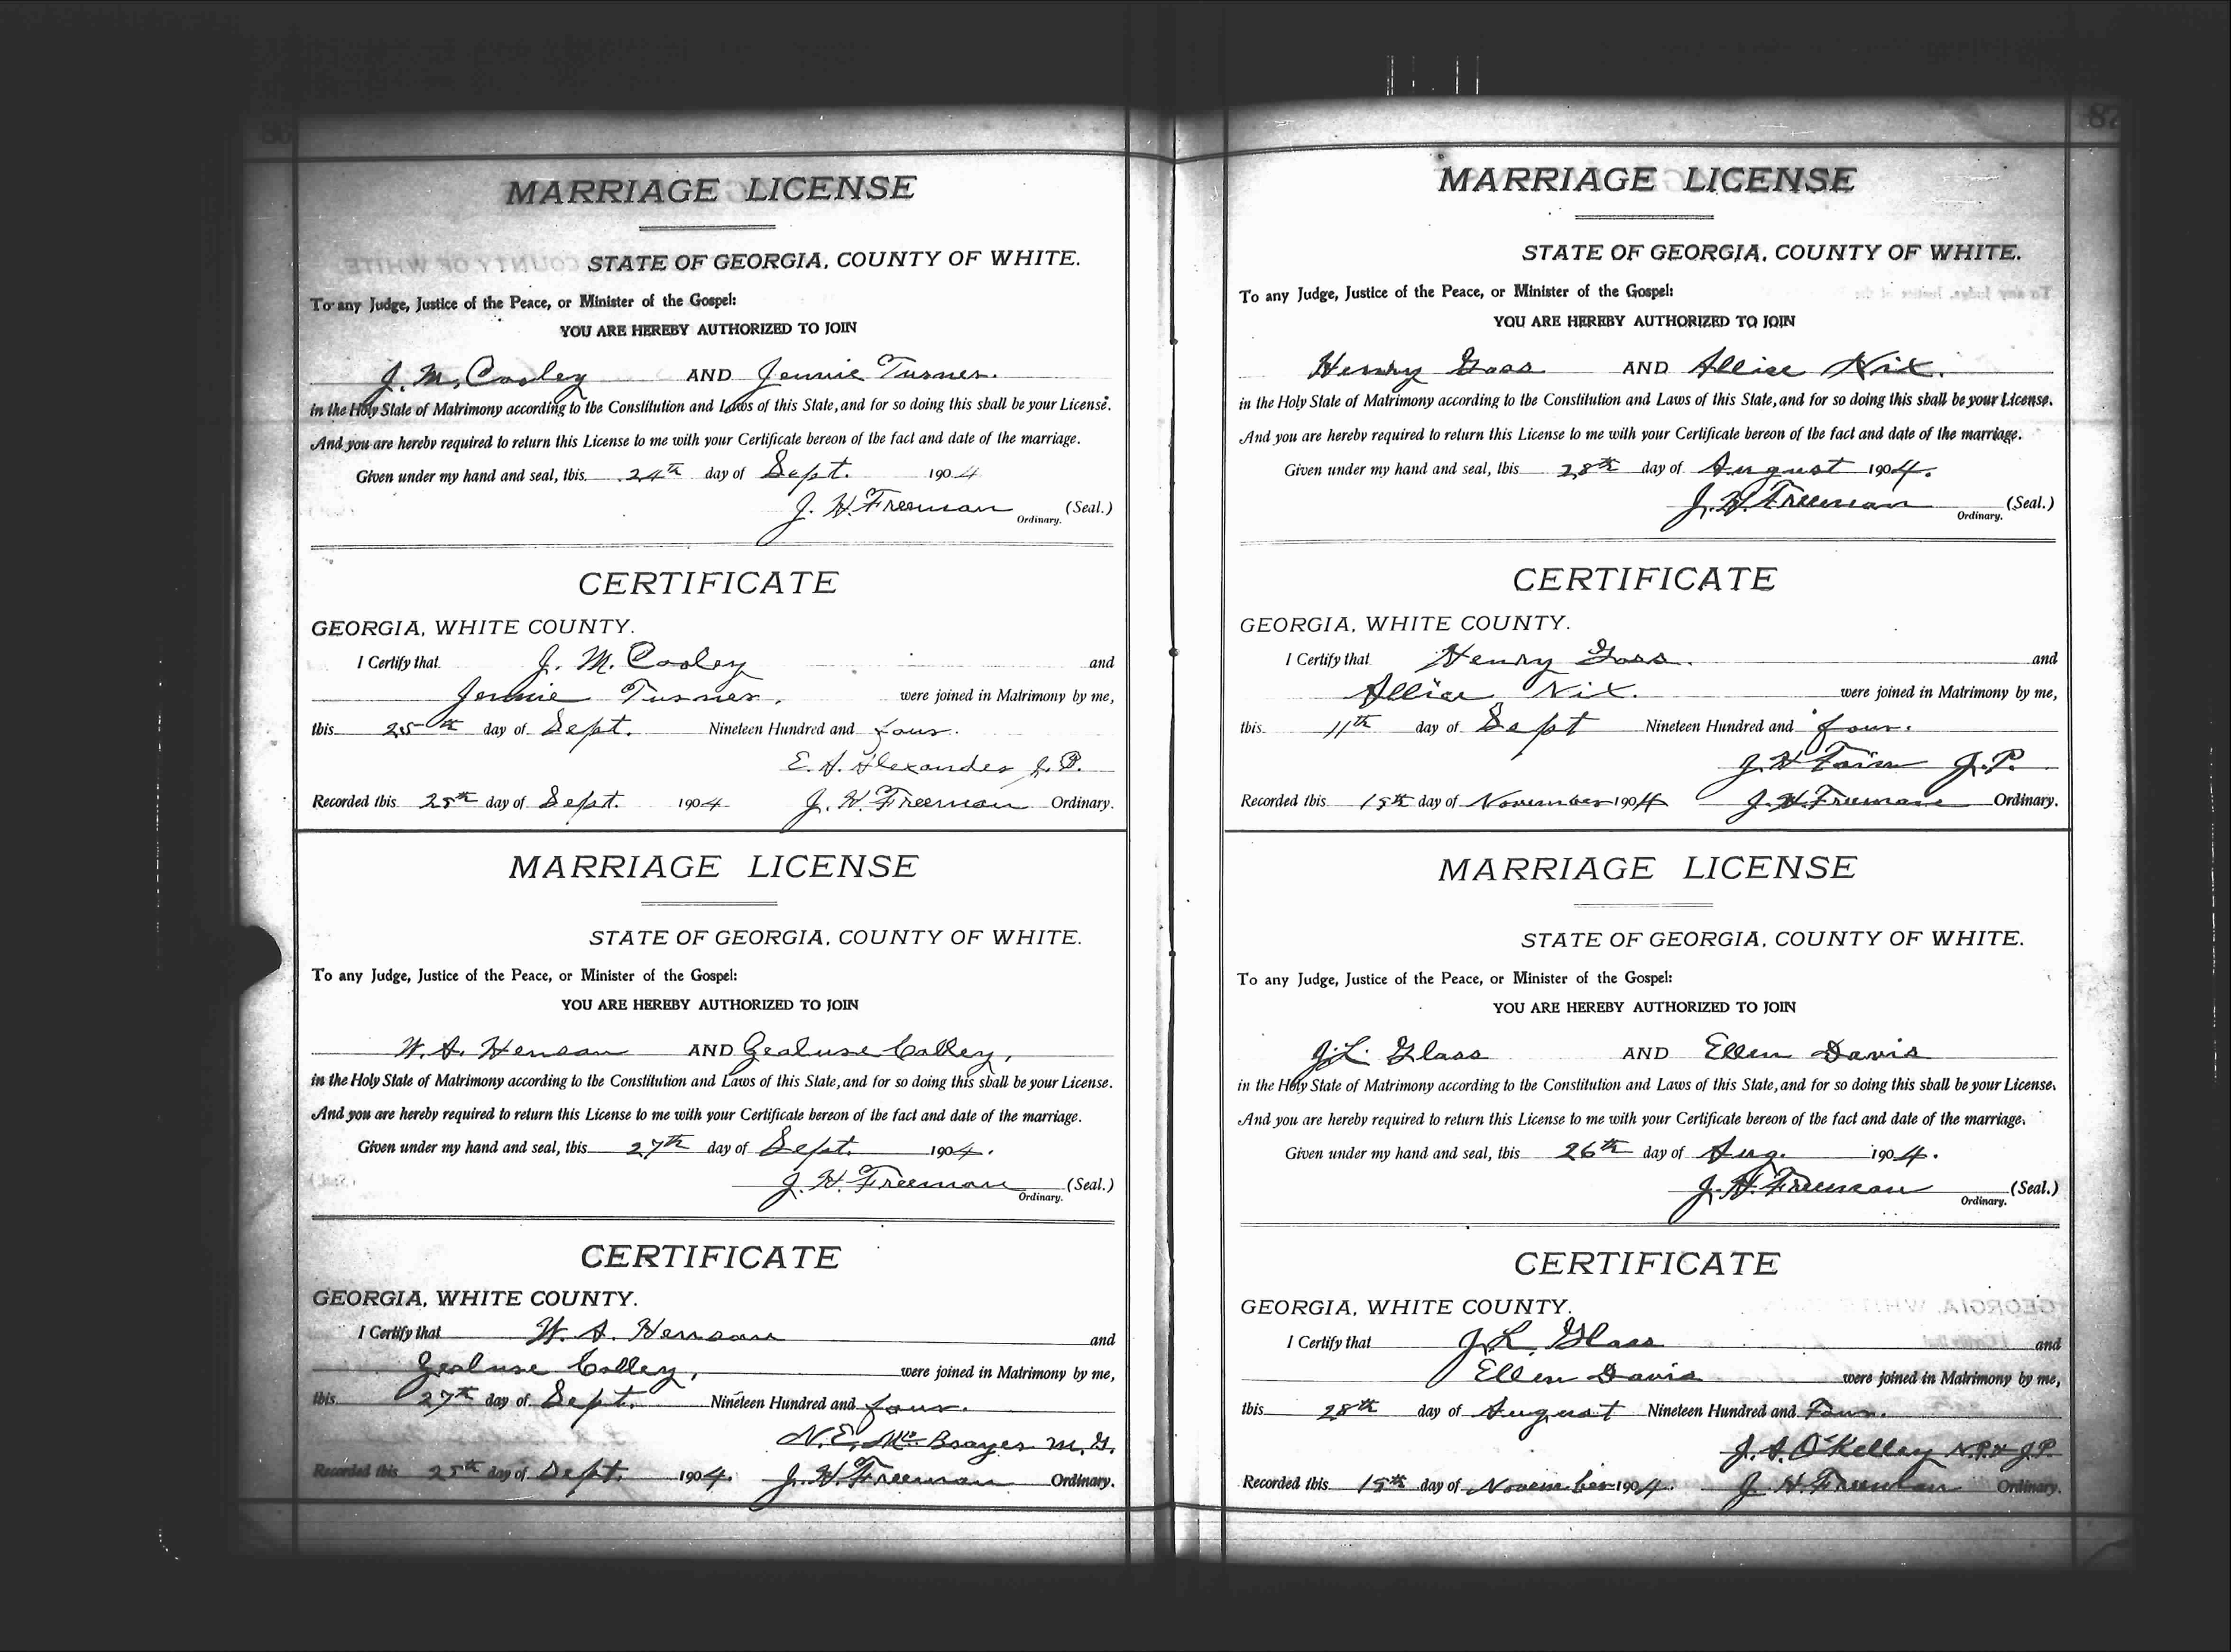 86
MARRIAGE LICENSE
STATE OF GEORGIA, COUNTY OF WHITE.
To any Judge, Justice of the Peace, or Minister of the Gospel:
YOU ARE HEREBY AUTHORIZED TO JOIN
J. M. Cooley AND Jennie Turner.
in the Holy State of Matrimony according to the Constitution and Laws of this State, and for so doing this shall be your License.
And you are hereby required to return this License to me with your Certificate hereon of the fact and date of the marriage.
Given under my hand and seal, this 24th day of Sept. 1904
J. H. Freeman (Seal.)
Ordinary.
CERTIFICATE
GEORGIA, WHITE COUNTY.
I Certify that J. M. Cooley and
Jennie Turner, were joined in Matrimony by me,
this 25th day of Sept. Nineteen Hundred and four.
E. A. Alexander J. P.
Recorded this 25th day of Sept. 1904 J. H. Freeman Ordinary.
MARRIAGE LICENSE
STATE OF GEORGIA, COUNTY OF WHITE.
To any Judge, Justice of the Peace, or Minister of the Gospel:
YOU ARE HEREBY AUTHORIZED TO JOIN
W. A. Henson AND Colley,
in the Holy State of Matrimony according to the Constitution and Laws of this State, and for so doing this shall be your License.
And you are hereby required to return this License to me with your Certificate hereon of the fact and date of the marriage.
Given under my hand and seal, this 27th day of Sept. 1904.
J. H. Freeman (Seal.)
Ordinary.
CERTIFICATE
GEORGIA, WHITE COUNTY.
I Certify that W. A. Henson and
Colley, were joined in Matrimony by me,
this 27th day of Sept. Nineteen Hundred and four.
N. E. McBrayer M. G.
Recorded this 25th day of Sept. 1904. J. H. Freeman Ordinary.
87
MARRIAGE LICENSE
STATE OF GEORGIA, COUNTY OF WHITE.
To any Judge, Justice of the Peace, or Minister of the Gospel:
YOU ARE HEREBY AUTHORIZED TO JOIN
Henry Goss AND Allice Nix.
in the Holy State of Matrimony according to the Constitution and Laws of this State, and for so doing this shall be your License.
And you are hereby required to return this License to me with your Certificate hereon of the fact and date of the marriage.
Given under my hand and seal, this 28th day of August 1904.
J. H. Freeman (Seal.)
Ordinary.
CERTIFICATE
GEORGIA, WHITE COUNTY.
I Certify that Henry Goss. and
Allice Nix. were joined in Matrimony by me,
this 11th day of Sept Nineteen Hundred and four.
J. H. J. P.
Recorded this 15th day of November 1904 J. H. Freeman Ordinary.
MARRIAGE LICENSE
STATE OF GEORGIA, COUNTY OF WHITE.
To any Judge, Justice of the Peace, or Minister of the Gospel:
YOU ARE HEREBY AUTHORIZED TO JOIN
J. L. Glass AND Ellen Davis
in the Holy State of Matrimony according to the Constitution and Laws of this State, and for so doing this shall be your License.
And you are hereby required to return this License to me with your Certificate hereon of the fact and date of the marriage.
Given under my hand and seal, this 26th day of Aug. 1904.
J. H. Freeman (Seal.)
Ordinary.
CERTIFICATE
GEORGIA, WHITE COUNTY.
I Certify that J. L. Glass and
Ellen Davis were joined in Matrimony by me,
this 28th day of August Nineteen Hundred and Four.
J. A. O'Kelley N.P. & J.P.
Recorded this 15th day of November 1904. J. H. Freeman Ordinary.